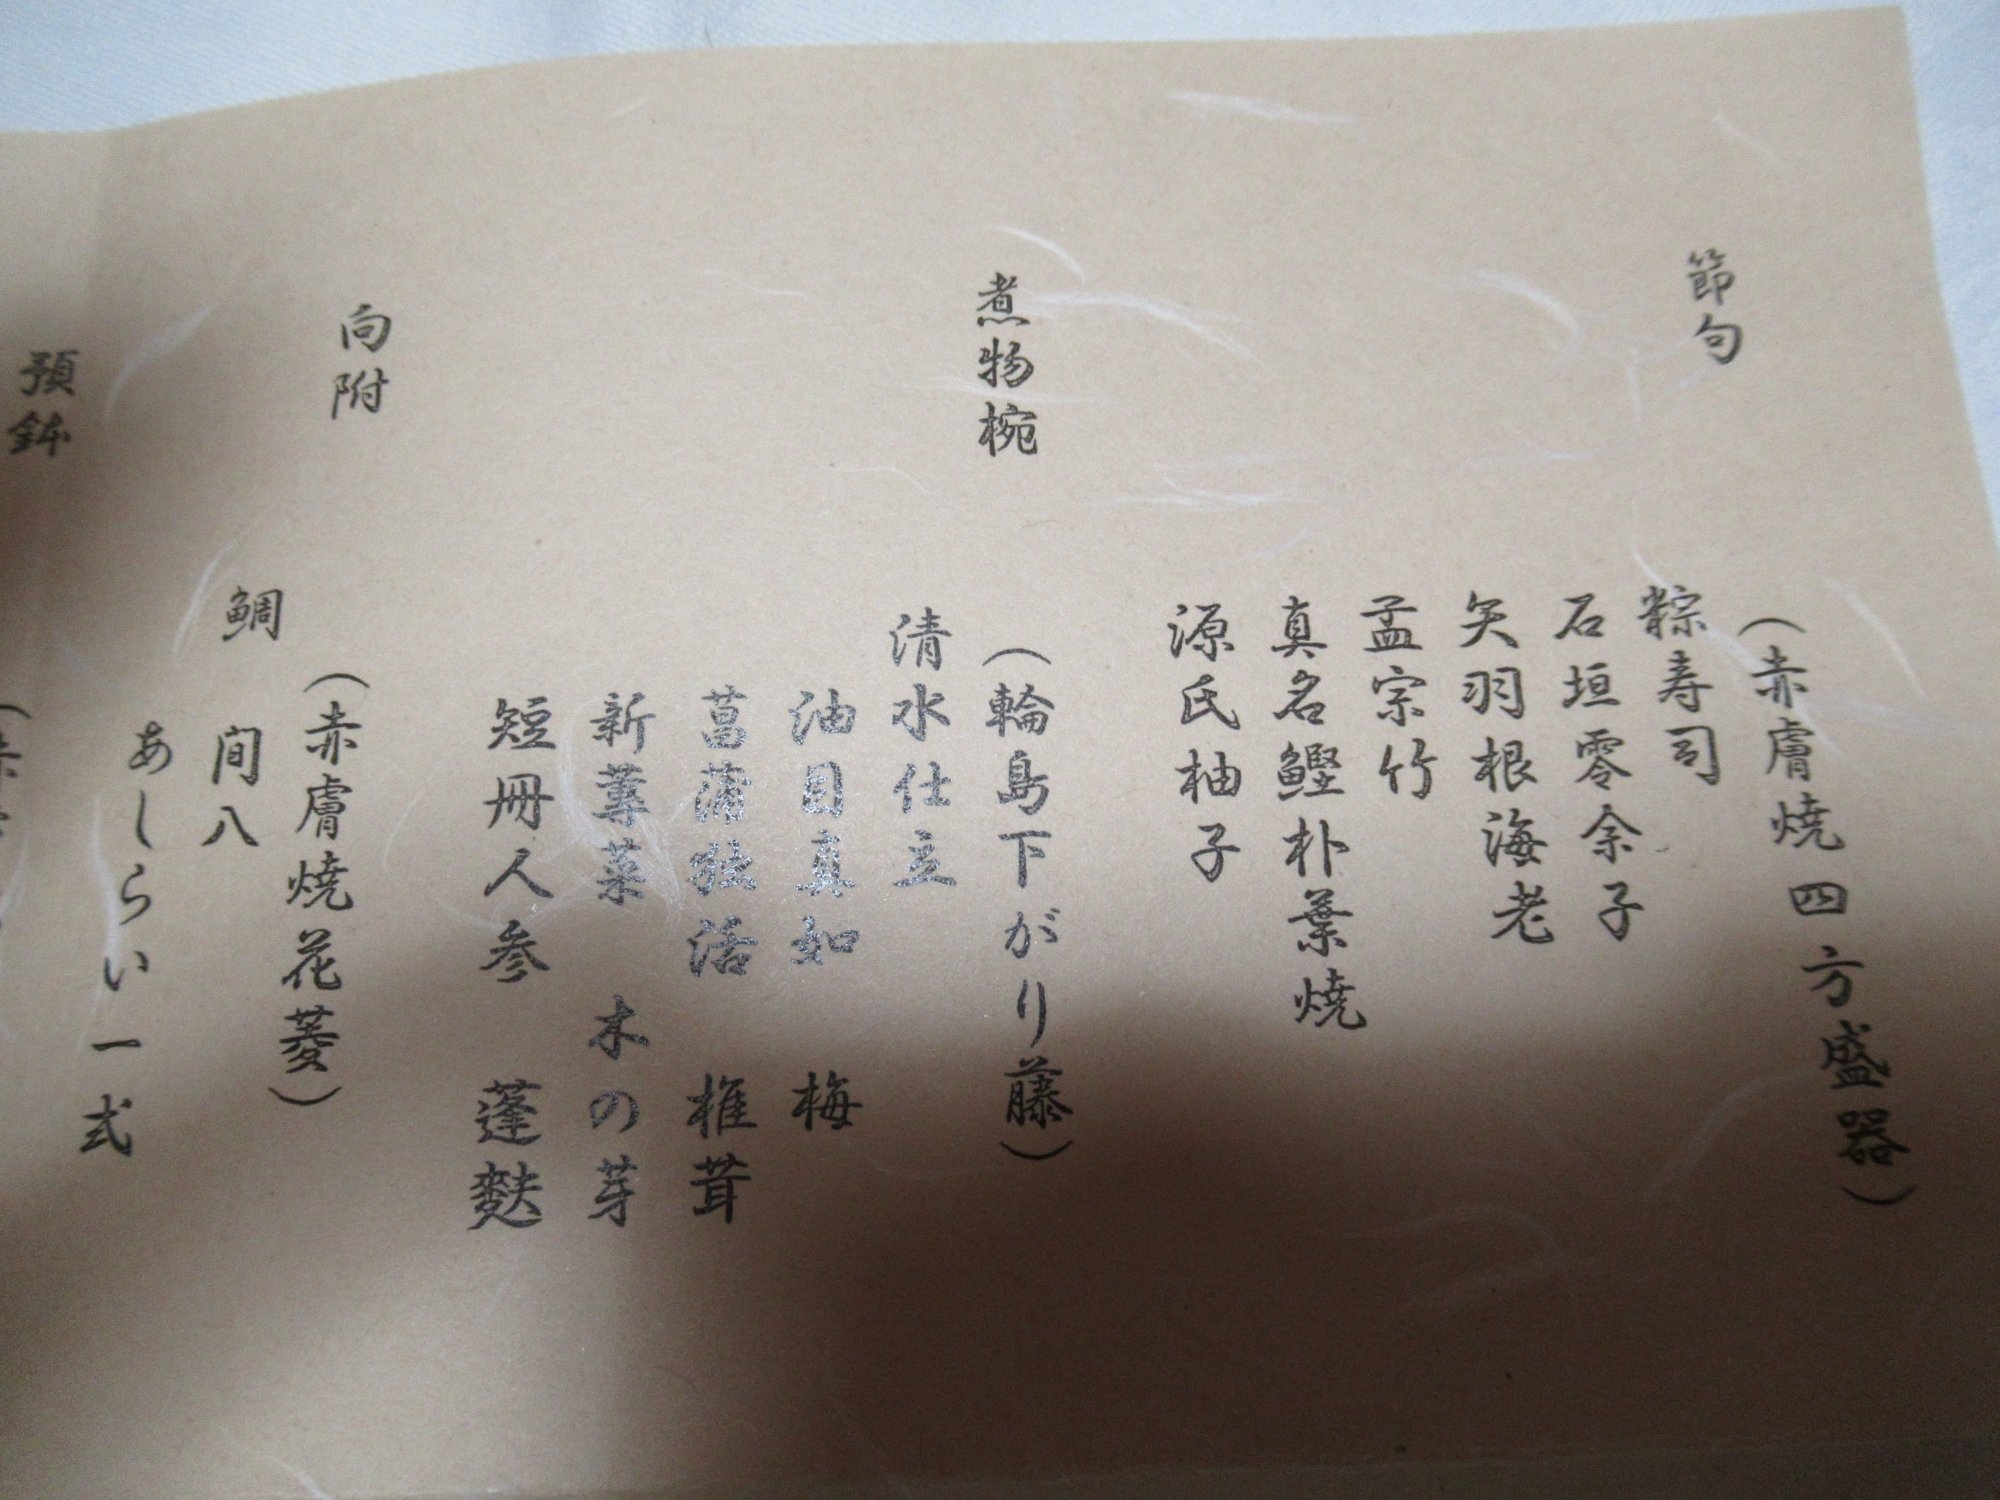 節句
（赤膚焼四方盛器）
粽寿司
石垣零余子
矢羽根海老
孟宗竹
真名鰹朴葉焼
源氏柚子
煮物椀
（輪島下がり藤）
清水仕立
油目真如　梅
菖蒲独活　椎茸
新蓴菜　木の芽
短冊人参　蓬麩
向附
（赤膚焼花菱）
鯛　間八
あしらい一式
預鉢